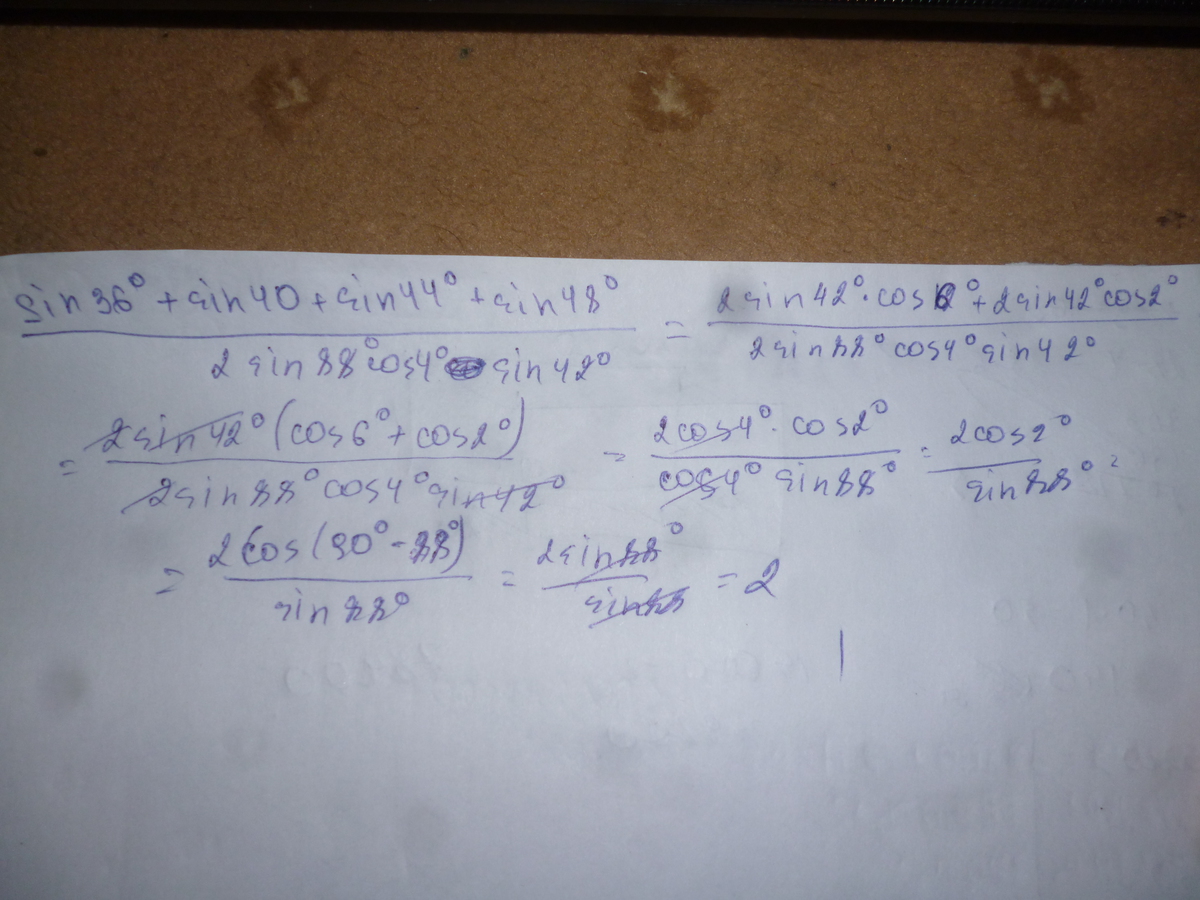 sin36° + sin40 + sin44° + sin48° / 2 sin88° cos4° sin42° = 2 sin42° · cos6° + 2 sin42° cos2° / 2 sin88° cos4° sin42°
= 2 sin42° (cos6° + cos2°) / 2 sin88° cos4° sin42° = 2cos4° · cos2° / cos4° sin88° = 2cos2° / sin88° =
= 2cos(90° - 88°) / sin88° = 2 sin88° / sin88 = 2